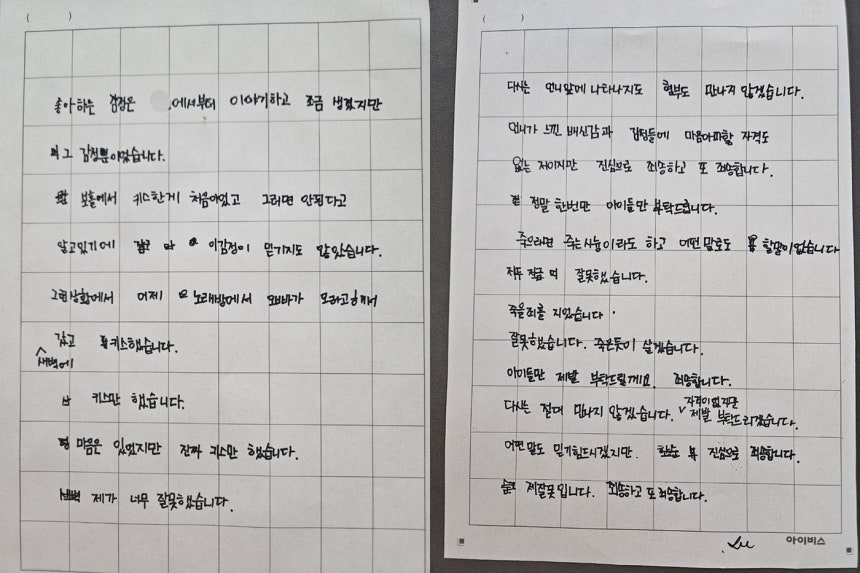 ( )
좋아하는 감정은 에서부터 이야기하고 조금 생겼지만
그 감정뿐이었습니다.
보홀에서 키스한게 처음이었고 그러면 안된다고
알고있기에 이감정이 믿기지도 않았습니다.
그런상황에서 어제 노래방에서 오빠가 오라고해서
갔고 키스했습니다.
새벽에
키스만 했습니다.
마음은 있었지만 진짜 키스만 했습니다.
제가 너무 잘못했습니다.
( )
다시는 언니앞에 나타나지도 형부도 만나지 않겠습니다.
언니가 느낀 배신감과 감정들에 마음아파할 자격도
없는 저이지만 진심으로 죄송하고 또 죄송합니다.
정말 한번만 아이들만 부탁드립니다.
죽으라면 죽는시늉이라도 하고 어떤말로도 할말이없습니다
잘못했습니다.
죽을죄를 지었습니다.
잘못했습니다. 죽은듯이 살겠습니다.
아이들만 제발 부탁드릴게요. 죄송합니다.
자격이없지만
다시는 절대 만나지 않겠습니다. 제발 부탁드리겠습니다.
어떤말도 믿기힘드시겠지만 진심으로 죄송합니다.
제잘못입니다. 죄송하고 또 죄송합니다.
아이비스